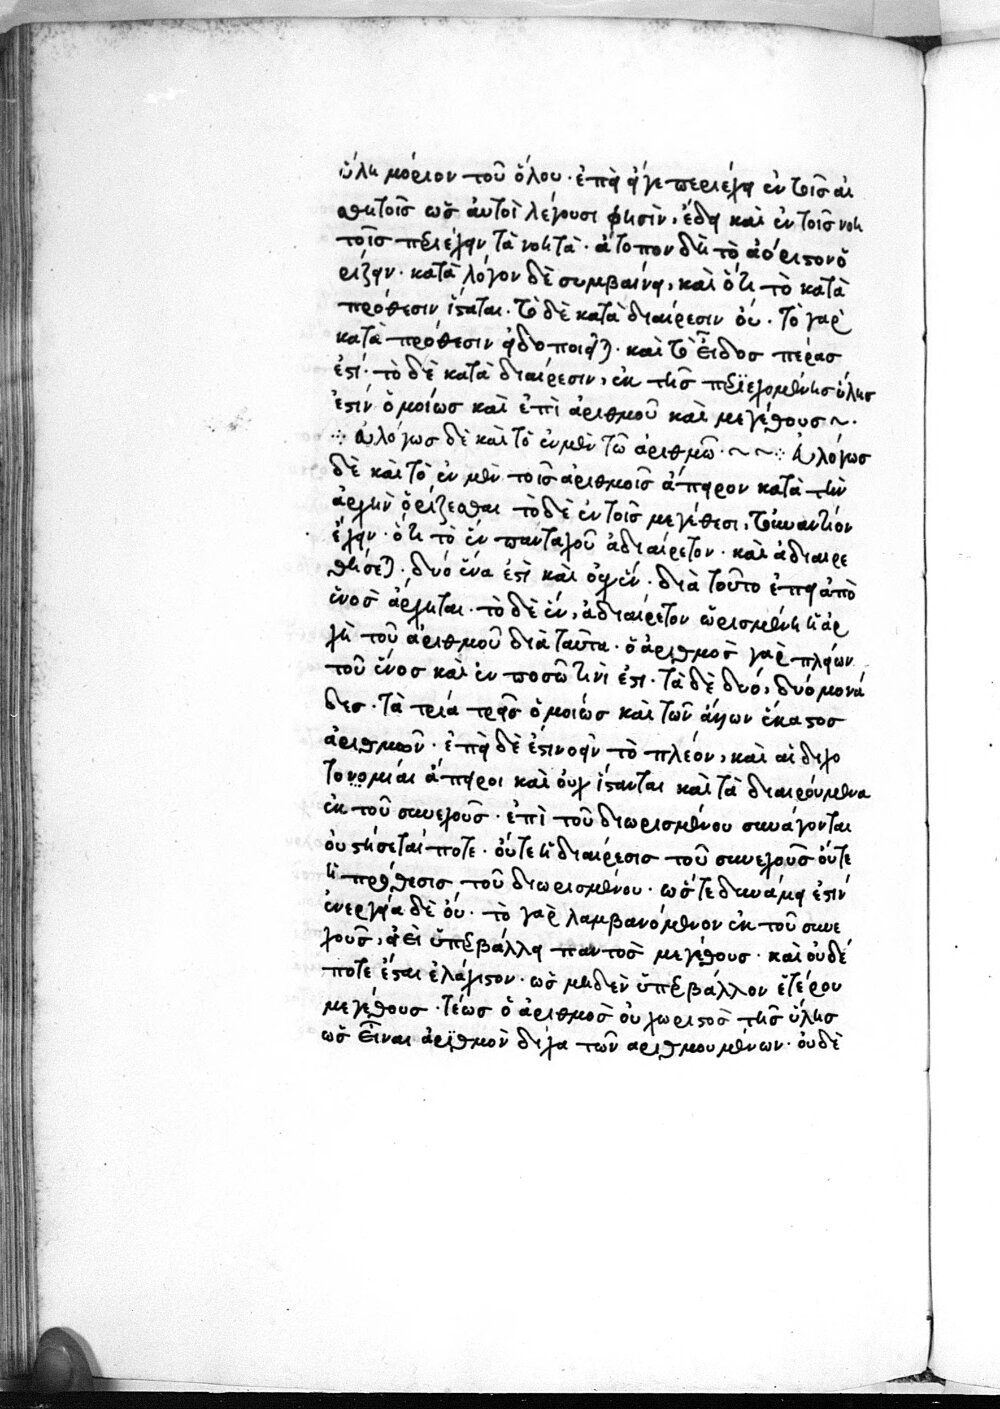 ὕλη μόριον τοῦ ὅλου · ἐπεὶ εἴγε περιέχει ἐν τοῖς αἰ
σθητοῖς ὡς αὐτοὶ λέγουσι φησὶν, ἔδει καὶ ἐν τοῖς νοη
τοῖς περιέχειν τὰ νοητά · ἄτοπον δὴ τὸ ἀόριστον ὁ
ρίζειν · κατὰ λόγον δὲ συμβαίνει, καὶ ὅτι τὸ κατὰ
πρόθεσιν ἵσταται · τὸ δὲ κατὰ διαίρεσιν οὔ · τὸ γὰρ
κατὰ πρόθεσιν εἰδοποιεῖται · καὶ τὸ εἶδος πέρας
ἐστί · τὸ δὲ κατὰ διαίρεσιν, ἐκ τῆς περιεχομένης ὕλης
ἐστὶν ὁμοίως καὶ ἐπὶ ἀριθμοῦ καὶ μεγέθους ~ ·
Εὐλόγως δὲ καὶ τὸ ἐν μὲν τῶ ἀριθμῶ · ~ ~ Εὐλόγως
δὲ καὶ τὸ ἐν μὲν τοῖς ἀριθμοῖς ἄπειρον κατὰ τὴν
ἀρχὴν ὁρίζεσθαι τὸ δὲ ἐν τοῖς μεγέθεσι, τοὐναντίον
ἔχειν · ὅτι τὸ ἓν πανταχοῦ ἀδιαίρετον · καὶ ἂ διαιρε
θήσεται · δύο ἕνα ἐστὶ καὶ οὐχ ἕν · διὰ τοῦτο ἐπεὶ ἀπὸ
ἑνὸς ἄρχηται · τὸ δὲ ἓν, ἀδιαίρετον ὡρισμένη ἡ ἀρ
χὴ τοῦ ἀριθμοῦ διὰ ταῦτα · ὁ ἀριθμὸς γὰρ πλείων
τοῦ ἑνὸς καὶ ἐν ποσῶ τινὶ ἐστι · τὰ δὲ δυό, δύο μονά
δες · τὰ τρία τρεῖς ὁμοίως καὶ τῶν ἄλλων ἕκαστος
ἀριθμῶν · ἐπεὶ δὲ ἐστὶ νοεῖν τὸ πλέον, καὶ αἱ διχο
τονομίαι ἄπειροι καὶ οὐχ ἵστανται καὶ τὰ διαιρούμενα
ἐκ τοῦ συνεχοῦς · ἐπὶ τοῦ διωρισμένου συνάγονται
οὐ στήσεταί ποτε · οὔτε ἡ διαίρεσις τοῦ συνεχοῦς οὔτε
ἡ πρόσθεσις τοῦ διωρισμένου · ὥστε δυνάμει ἐστὶν
ἐνεργεία δὲ οὔ · τὸ γὰρ λαμβανόμενον ἐκ τοῦ συνε
χοῦς, ἀεὶ ὑπερβάλλει παντὸς μεγέθους · καὶ οὐδέ
ποτε ἔσται ἐλάχιστον · ὡς μηδὲν ὑπερβάλλον ἑτέρου
μεγέθους · τέως ὁ ἀριθμὸς οὐ χωριστὸς τῆς ὕλης
ὡς εἶναι ἀριθμὸν δίχα τῶν αριθμουμένων · οὐδὲ